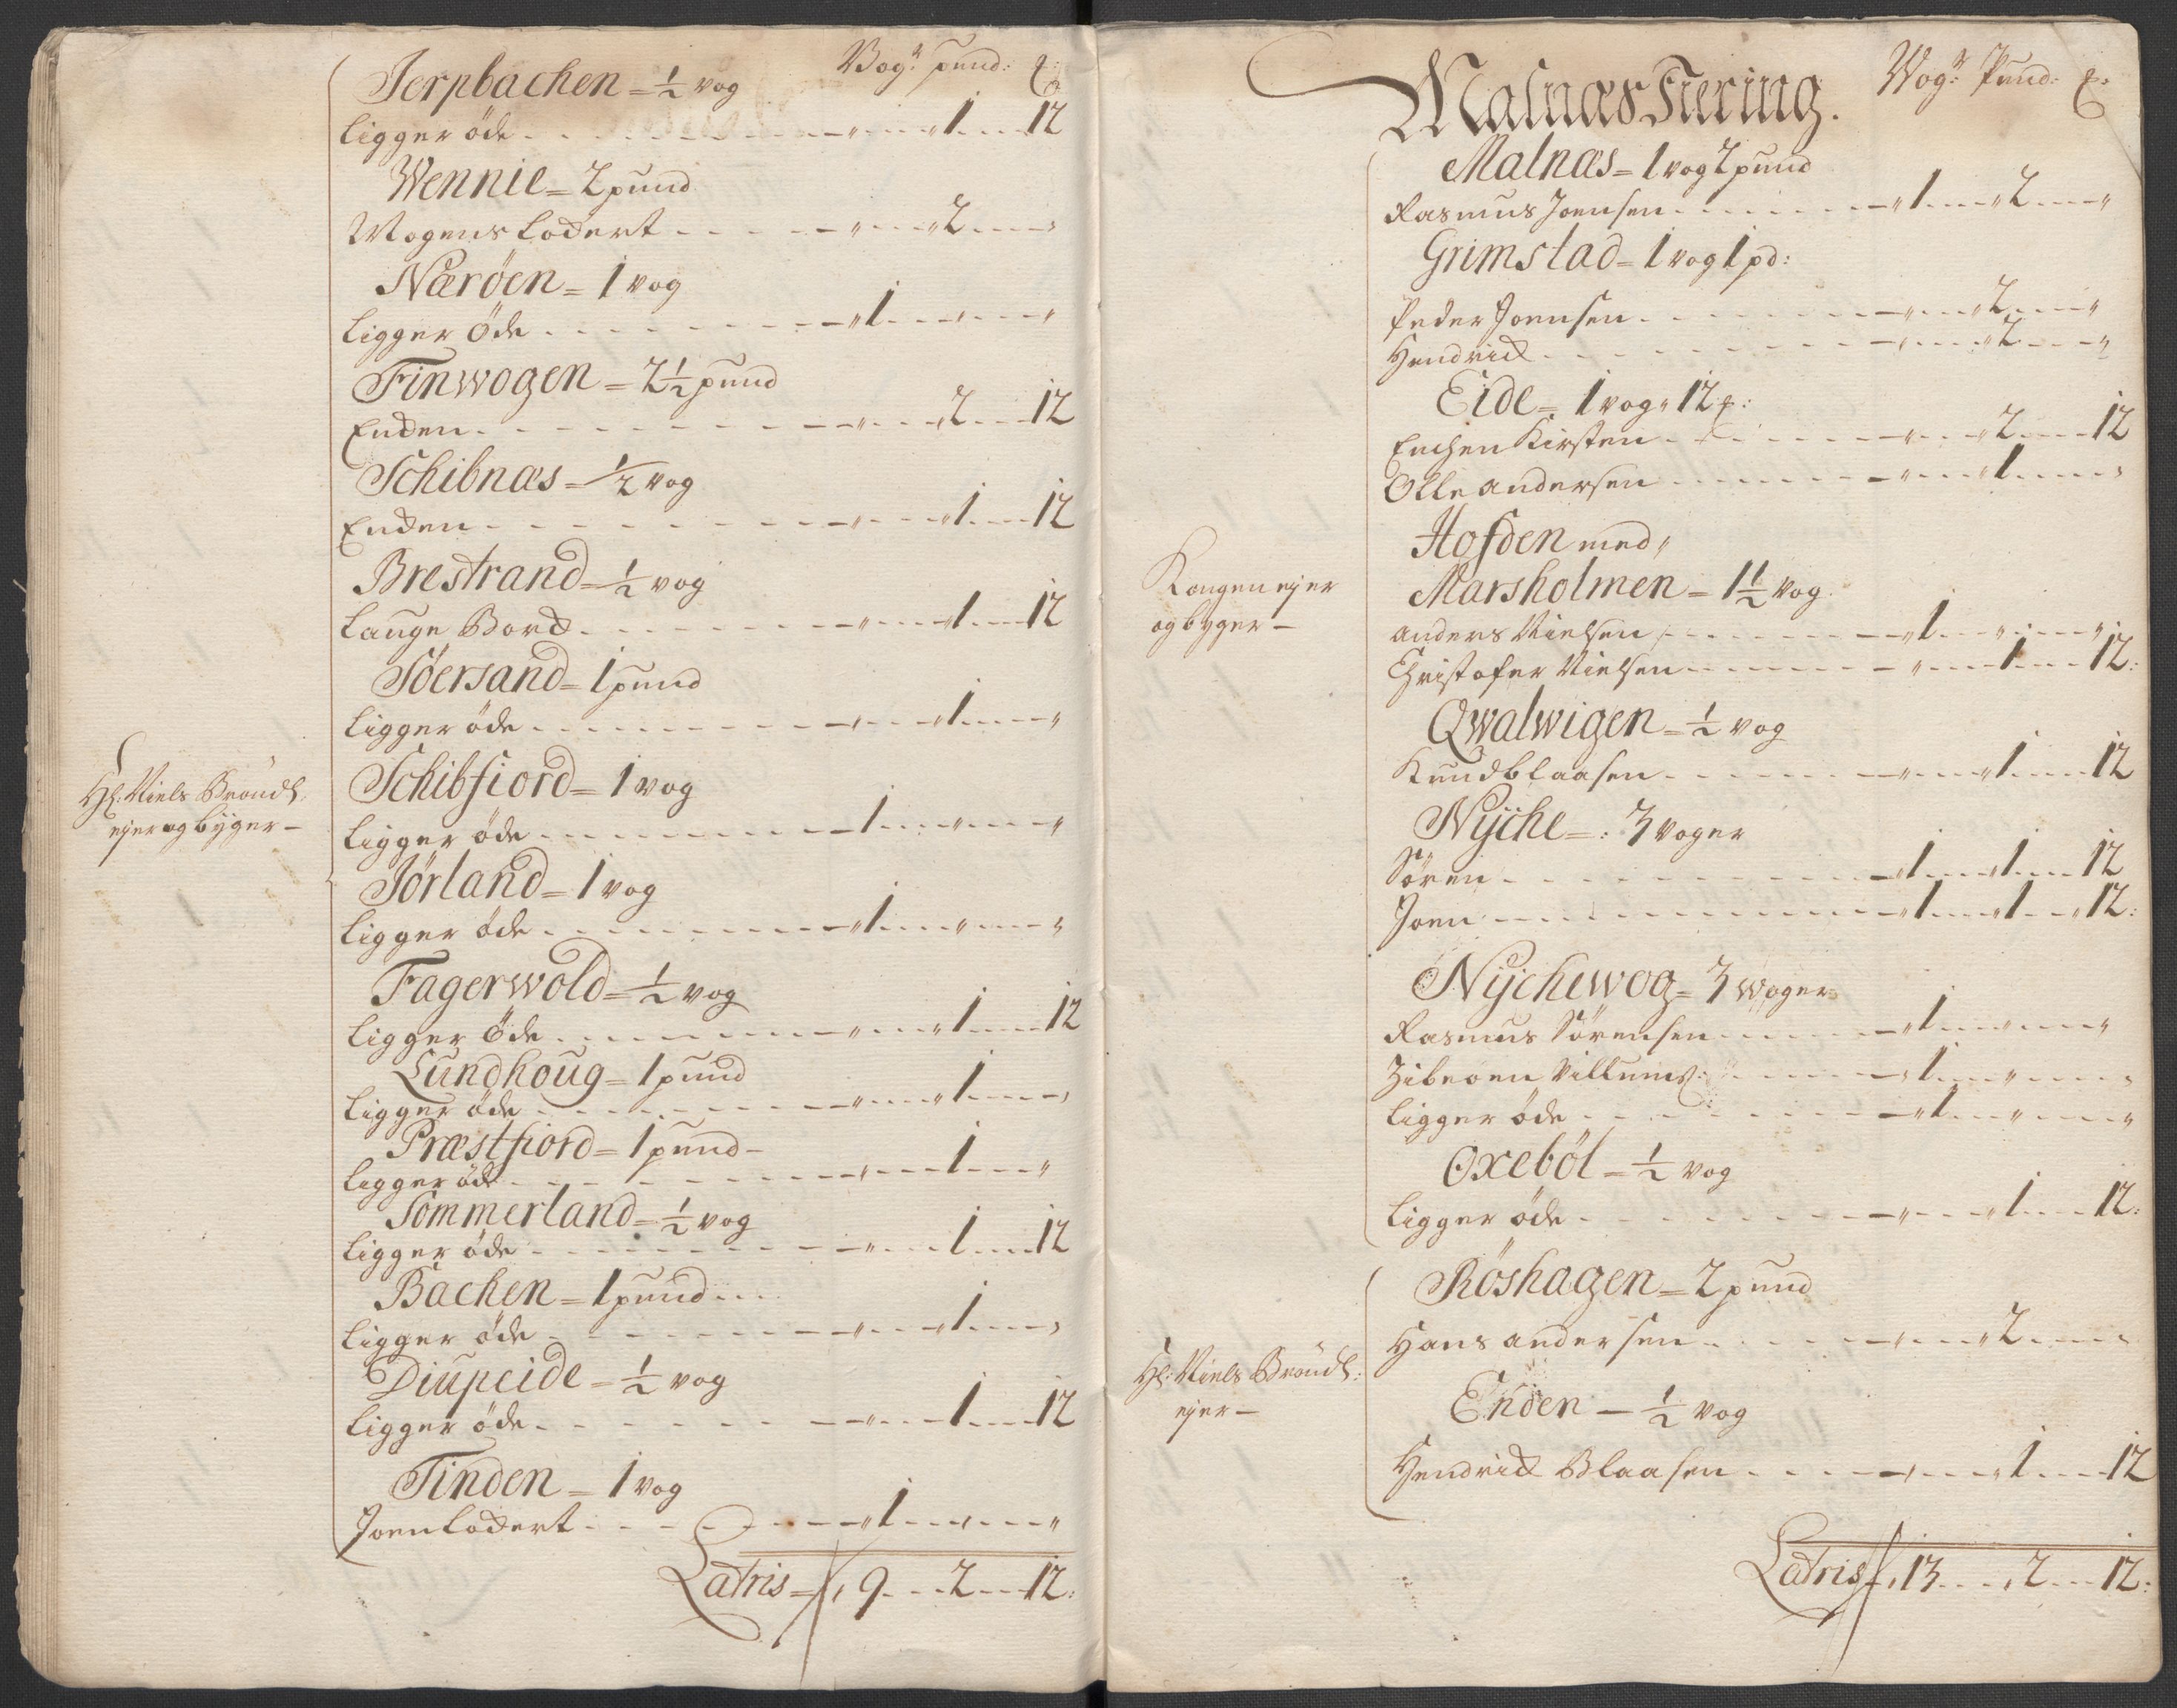 Vog:r pund: ℔:
Jerpbachen = ½ vog
ligger öde - „ - 1 - 12
Wennie = 2 pund
Mogens Lockert - „ - 2 - „
Næröen = 1 vog
ligger öde - 1 - „ - „
Finwogen = 2½ pund
Enchen - „ - 2 - 12
Schibnæs = ½ vog
Enchen - „ - 1 - 12
Brestrand = ½ vog
Lauge Bock - „ - 1 - 12
Söersand = 1 pund
ligger öde - „ - 1 - „
Hl: Niels Bröndl:
ejer og byger -
Schibfiord = 1 vog
ligger öde - 1 - „ - „
Jörland = 1 vog
ligger öde - 1 - „ - „
Fagerwold = ½ vog
ligger öde - „ - 1 - 12
Lundhoug = 1 pund
ligger öde - „ - 1 - „
Præstfiord = 1 pund -
ligger öde - „ - 1 - „
Sommerland = ½ vog
ligger öde - „ - 1 - 12
Bachen = 1 pund
ligger öde - „ - 1 - „
Diupeide = ½ vog
ligger öde - „ - 1 - 12
Tinden = 1 vog
Joen Lockert - 1 - „ - „
Latris = 9 - 2 - 12:
Malnæs Fiering.
Wog:r Pund: ℔:
Malnæs = 1 vog 2 pund
Rasmus Joensen - 1 - 2 - „
Grimstad = 1 vog 1 pd:
Peder Joensen - „ - 2 - „
Hendrick - „ - 2 - „
Eide = 1 vog „ 12 ℔:
Enchen Kirsten - „ - 2 - 12
Olle Andersen - „ - 1 - „
Kongen ejer
og byger -
Hofden med „
Marsholmen = 1½ vog
Anders Nielsen - 1 - „ - „
Christofer Nielsen - „ - 1 - 12:
Qwalwigen = ½ vog
Knud Blaasen - „ - 1 - 12
Nÿche = : 3 voger
Sören - 1 - 1 - 12
Joen - 1 - 1 - 12:
Nÿchewog = 3 woger
Rasmus Sörensen - 1 - „ - „
Willums: - 1 - „ - „
ligger öde - 1 - „ - „
Oxeböl = ½ vog
ligger öde - „ - 1 - 12:
Röshagen = 2 pund
Hans Andersen - „ - 2 - „
Hl: Niels Bröndl:
ejer -
Enden - ½ vog
Hendrick Blaasen - „ - 1 - 12
Latris 13 - 2 - 12: